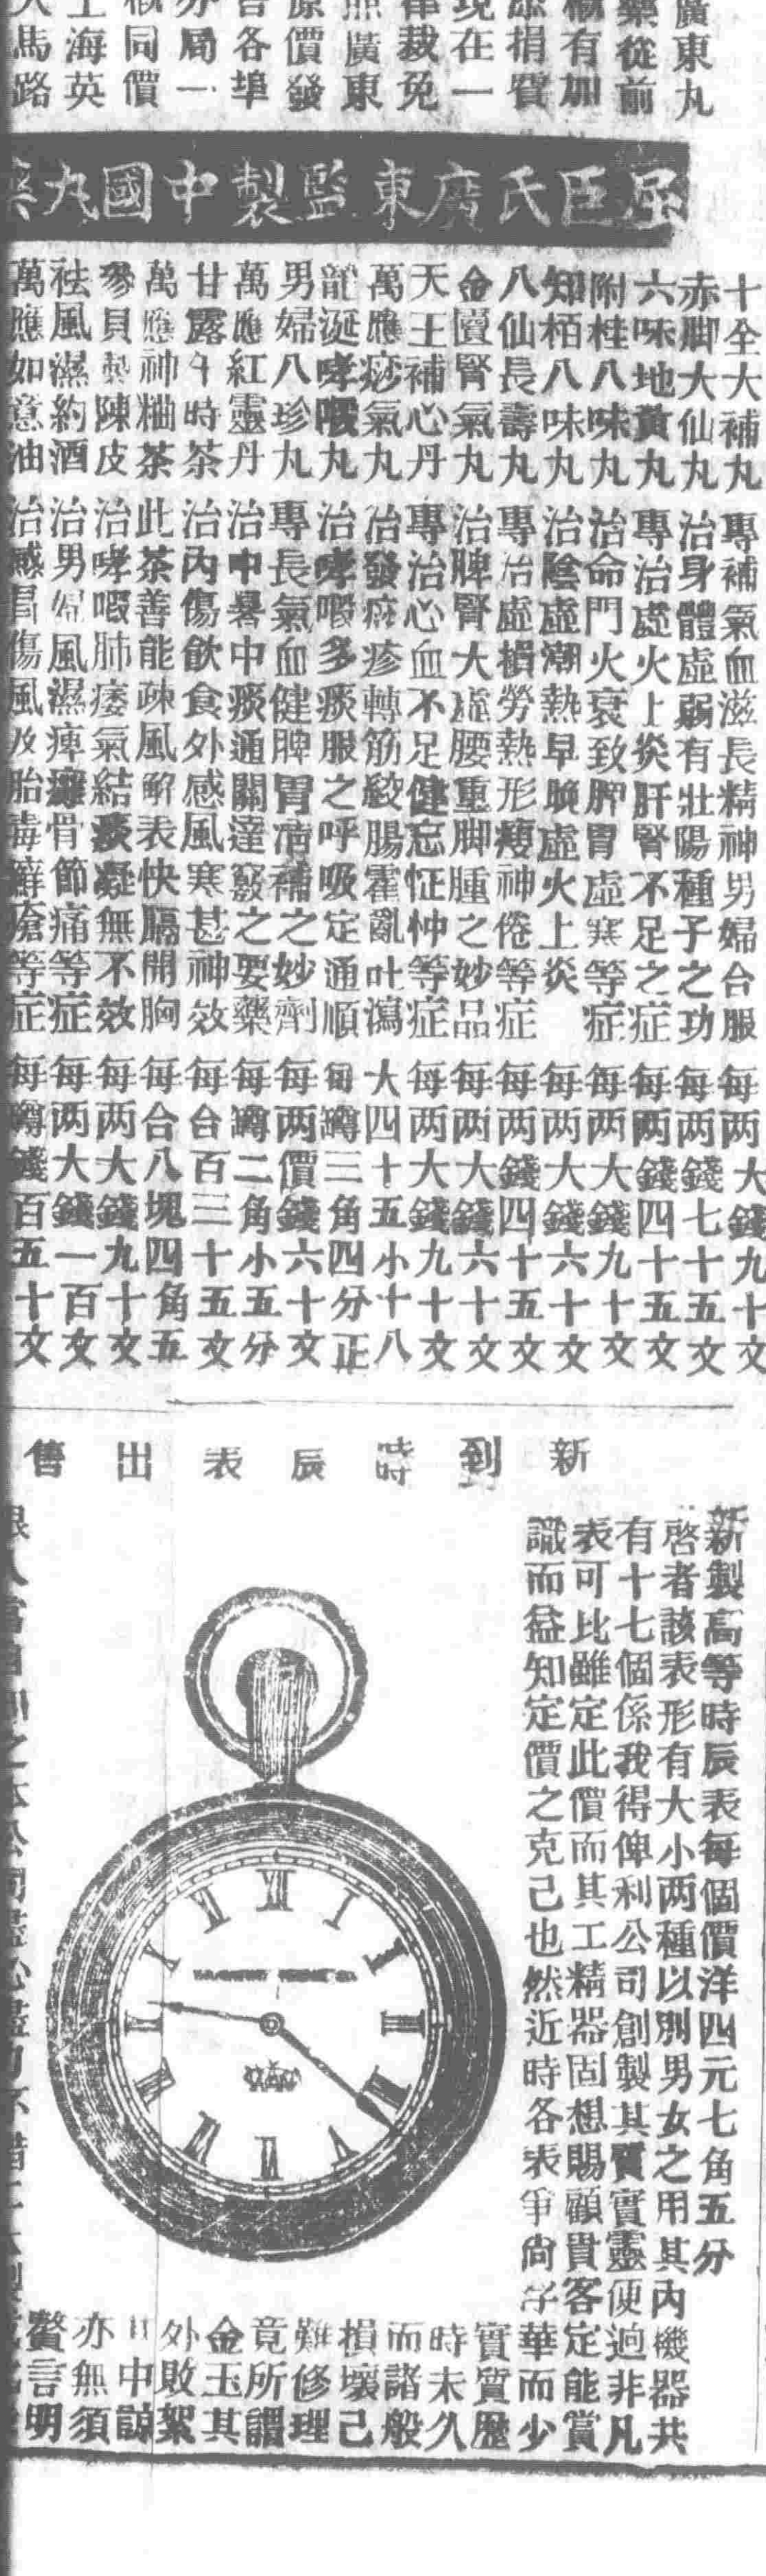 廣東丸
藥從前
有加
捐貲
現在一
律裁免
照廣東
原價發
各埠
亦局一
概同價
上海英
大馬路
屈臣氏廣東監製中國丸藥
十全大補丸 專補氣血滋長精神男婦合服 每两大錢九十文
赤脚大仙丸 治身體虛弱有壯陽種子之功 每两錢七十五文
六味地黃丸 專治虛火上炎肝腎不足之症 每两錢四十五文
附桂八味丸 治命門火衰致脾胃虛寒等症 每两大錢九十文
知栢八味丸 治陰虛潮熱早晚虛火上炎 每两大錢六十文
八仙長壽丸 專治虛損勞熱形瘦神倦等症 每两錢四十五文
金匱腎氣丸 治脾腎大虛腰重脚腫之妙品 每两大錢六十文
天王補心丹 專治心血不足健忘怔忡等症 每两大錢九十文
萬應痧氣丸 治發痧疹轉筋絞腸霍亂吐瀉 大四十五小十八
龍涎哮喘丸 治哮喘多痰服之呼吸定通順 每罇三角四分正
男婦八珍丸 專長氣血健脾胃清補之妙劑 每两價錢六十文
萬應紅靈丹 治中暑中痰通關達竅之要藥 每罇二角小五分
甘露午時茶 治內傷飲食外感風寒甚神效 每合百三十五文
萬應神粬茶 此茶善能疎風解表快膈開胸 每合八塊四角五
參貝陳皮 治哮嘏肺痿氣結痰凝無不效 每两大錢九十文
祛風濕約酒 治男婦風濕痺骨節痛等症 每两大錢一百文
萬應如意油 治感冒傷風及胎毒癬瘡等症 每罇錢百五十文
新到時辰表出售
新製高等時辰表每個價洋四元七角五分
啓者該表形有大小两種以別男女之用其內機器共
有十七個係我得俾利公司創製其質實靈便逈非凡
表可比雖定此價而其工精器固想賜顧貴客定能賞
識而益知定價之克己也然近時各表爭尙浮華而少
實質歷
時未久
而諸般
損壞己
難修理
竟所謂
金玉其
外敗絮
中諒
亦無須
贅言明